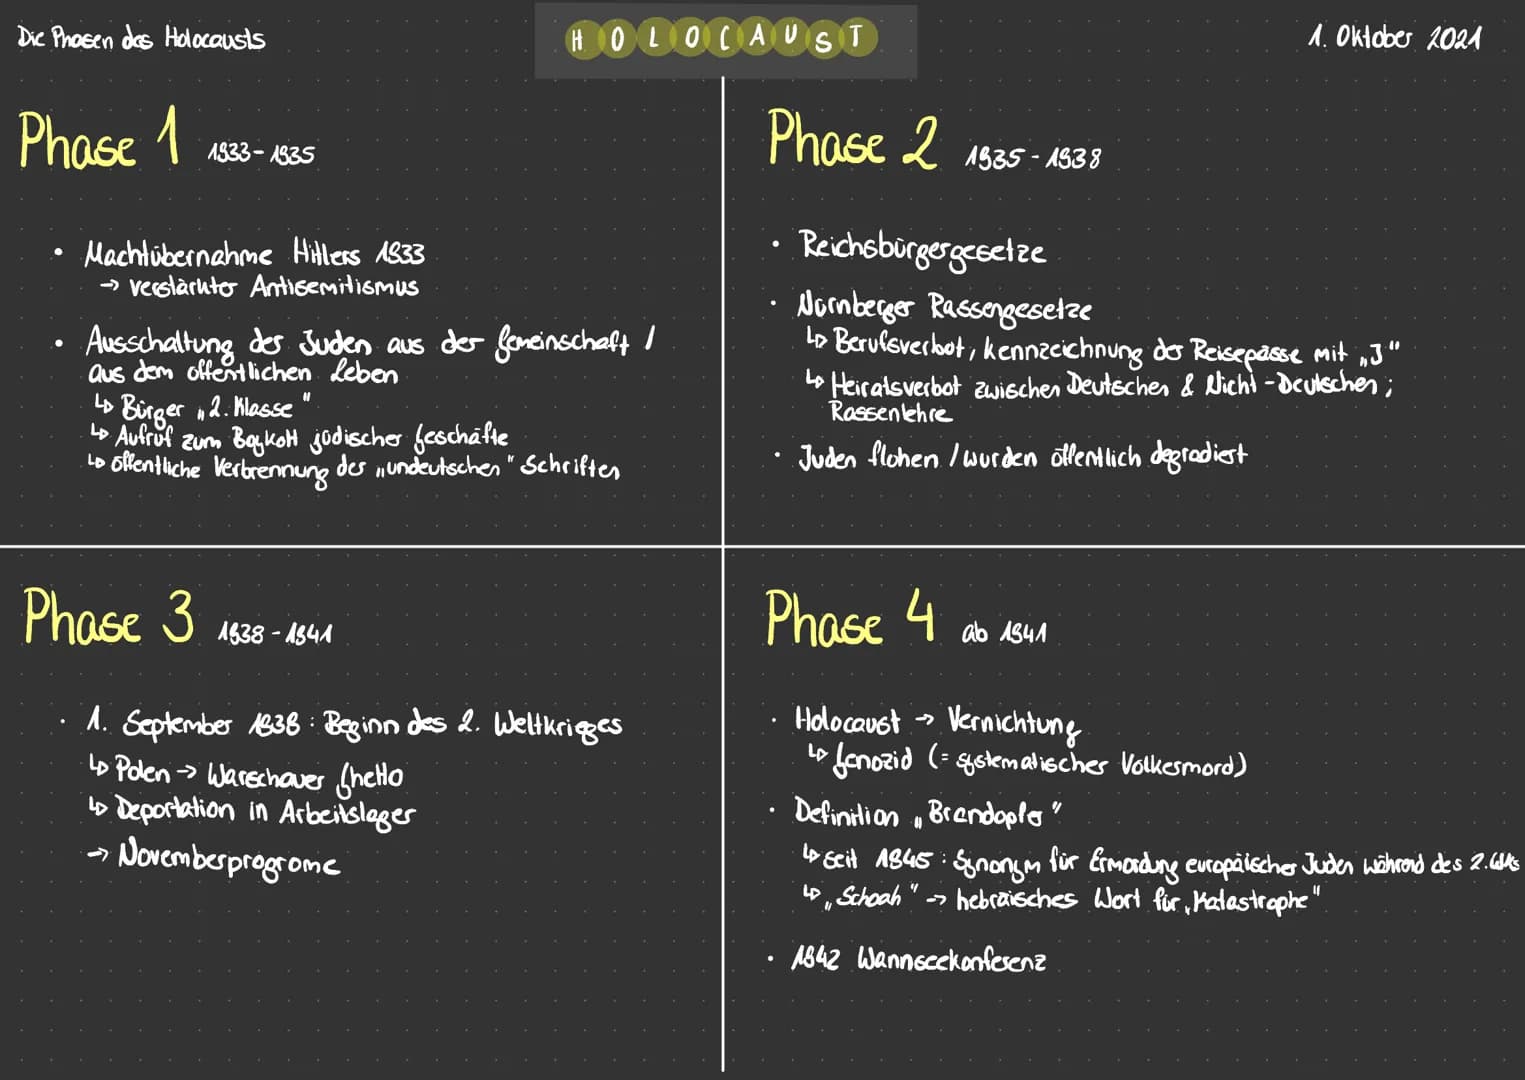 Die Phasen des Holocausts
HOLOCAUST
1. Oktober 2021
Phase 1 1933-1935
• Machtübernahme Hitlers 1933
→ verstärkter Antisemitismus
• Ausschaltung der Juden aus der Gemeinschaft /
aus dem öffentlichen Leben
↳ Bürger „2. Klasse"
↳ Aufruf zum Boykott jüdischer Geschäfte
↳ öffentliche Verbrennung der „undeutschen" Schriften
Phase 2 1935-1938
• Reichsbürgergesetze
• Nürnberger Rassengesetze
↳ Berufsverbot, Kennzeichnung der Reisepässe mit „J"
↳ Heiratsverbot zwischen Deutschen & Nicht-Deutschen;
Rassenlehre
• Juden flohen / wurden öffentlich degradiert
Phase 3 1938-1941
• 1. September 1938: Beginn des 2. Weltkrieges
↳ Polen → Warschauer Ghetto
↳ Deportation in Arbeitslager
→ Novemberprogrome
Phase 4 ab 1941
• Holocaust → Vernichtung
↳ Genozid (= systematischer Völkermord)
• Definition „Brandopfer"
↳ seit 1945: Synonym für Ermordung europäischer Juden während des 2. WKs
↳ „Schoah" → hebräisches Wort für „Katastrophe"
• 1942 Wannseekonferenz